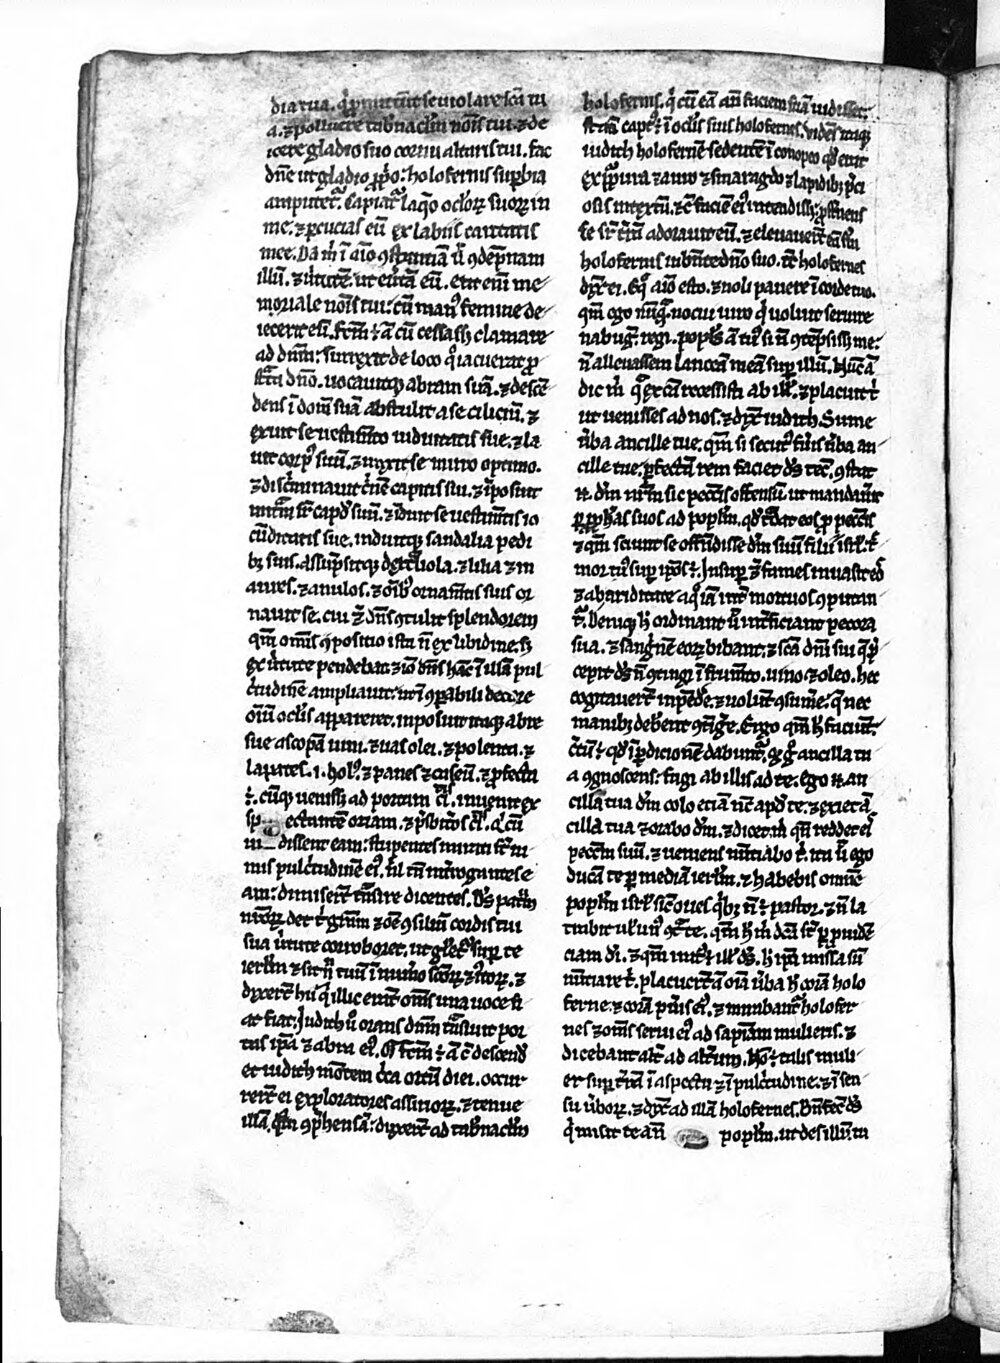 dia tua. qi promittunt se violare sc̄a tu
a. ⁊ polluere tab̄nacl̄m nōis tui. ⁊ de
icere gladio suo cornu altaris tui. fac
dn̄e ut gladio ꝓpo: holofernis suꝑbia
amputet᷑. Capiat᷑ laq̄o ocl̓oꝝ suoꝝ in
me. ⁊ ꝑcucias eū ex labiis caritatis
mee. Da m̓ ī aīo ꝯstantiā ut ꝯdēpnam
illū. ⁊ v̓tutē ut eūtā eū. erit eni᷑ me
moriale nōis tui: cū manꝰ femine de
iecerit eū. fc̄m ē a᷑ cū cessass᷑ clamare
ad dn̄m: surrexit de loco q̊ iacuerat ꝓ
strata dn̄o. uocauitqꝫ abram suā. ⁊ descē
dens ī domū suā abstulit a se ciliciū. ⁊
exuit se uestim̄to uiduitatis sue. ⁊ la
uit corpꝰ suū. ⁊ unxit se mirro optimo.
⁊ discriminauit crinē capitis sui. ⁊ īposuit
mitrā sr̄ capđ suū. ⁊ īduit se uestim̄tis io
cūditatis sue. induitqꝫ sandalia pedi
bꝫ suis. assūpsitqꝫ dext̓liola. ⁊ lilia ⁊ in
aures. ⁊ anulos. ⁊ oībꝰ ornam̄tis suis or
nauit se. cui ⁊ dn̄s ꝯtulit splendorem
qm̄ om̄is ꝯpositio ista n̄ ex libidine. sꝫ
ex v̓tute pendebat. ⁊ iō dn̄s hāc ī illā pul
c̓tudinē ampliauit. ut ī ꝯꝑabili decore
oīu᷑ oclis appareret. inposuit itaqꝫ abre
sue ascopā uini. ⁊ uas olei. ⁊ polenta. ⁊
lapates. ⁊ panes ⁊ caseū. ⁊ ꝓfecta
ē. cūqꝫ uenissꝫ ad portam ci. inuenit ex
sp ectantem oziam. ⁊ p̄sbit̓os ci. Qi cū
ui dissent eam: stupentes mirati st̄ ni
mis pulc̓tudinē eiꝰ. nl̄ tn̄ int̓rogantes e
am: dimiserūt tn̄sire dicentes. Ds̄ pat̓m
nr̄oꝝ det t̓ gr̄am ⁊ oē ꝯsiliū cordis tui
sua v̓tute corroboret. ut gl̓et᷑ suꝑ te
ierl̄m ⁊ sit nn̄ tuū ī num̓o sc̄oꝝ ⁊ iustoꝝ. ⁊
dixerūt hii qi illic erant om̄s una uoce fi
at fiat. Judith u᷑o orans dn̄m tn̄siuit por
tas ip̄a ⁊ abra eiꝰ. fc̄m ē a᷑ cū descend̓
et iudith mōtem circa ortū diei. occur
rerūt ei exploratores assirioꝝ. ⁊ tenue
illā. ꝯp̄hensā: dixerūt ad tab̄nacl̄m
holofernis. qi cū eā an̄ faciem suā uidisset:
statim captꝰ ē ī oclis suis holofernes. vidēs itaqꝫ
iudith holofernē sedentē ī conopeo qd̓ erat
ex purpura ⁊ auro ⁊ smaragdo ⁊ lapidibꝫ p̄ci
osis intextū. ⁊ cū faciē eiꝰ intendissꝫ: ꝓst̓nens
se sr̄ t̓rā adorauit eū. ⁊ eleuauerūt eā s̓ui
holofernis iubente dn̄o suo. tūc holofernes
dix̄ ei. Equo aīo esto. ⁊ noli pauere ī corde tuo.
qm̄ ego nūquā nocui uiro qi uoluit seruire
nabug᷑. regi. popl̓s a᷑ tuꝰ si n̄ ꝯtēpsissꝫ me:
n̄ alleuassem lanceā meā suꝑ illū. Nūc a᷑
dic m̓ qua ex cā recessisti ab ill̓. ⁊ placuit t̓
ut uenisses ad nos. ⁊ dix̄ iudith Sume
v̓ba ancille tue. qm̄ si secutꝰ fu̓is v̓ba an
cille tue. ꝑfectam rem faciet ds̄ tecū. ꝯstat
n. dm̄ nr̄m sic pecc̄is offensū ut mandau̓it
ꝑ ꝓphetas suos ad popl̄m. qd̓ tradat eos ꝓ pecc̄is
⁊ qm̄ sciunt se offendisse dm̄ suū filii isrl̓. t̓
mor tuꝰ suꝑ ip̄os ē. Insuꝑ ⁊ fames inuasit eos
⁊ ab ariditate aq̄ iā int̓ mortuos ꝯputan
t᷑. Deniqꝫ h̓ ordinant ut int̓ficiant pecora
sua. ⁊ sanguinē eoꝝ bibant. ⁊ sc̄a dn̄i sui que p̄
cepit ds̄ n̄ ꝯtingi ī frum̄to. uino. ⁊ oleo. hec
cogitauer̄t inpēdere. ⁊ uolunt ꝯsumē. que nec
manibꝫ deb̓ent ꝯtīgere. Ergo qm̄ h̓ faciunt.
c̓tū ē qd̓ ī ꝑdicionē dabunt᷑. qd̓ ego ancilla tu
a ꝯgnoscens: fugi ab illis ad te. Ego n. an
cilla tua dm̄ colo etiā nūc apd̓ te. ⁊ exiet ā
cilla tua ⁊ orabo dm̄. ⁊ dicet m̓ qn̄ reddet eis
pecc̄m suū. ⁊ ueniens nūtiabo t̓. ita ut ego
ducā te ꝑ mediā ierl̄m. ⁊ habebis omnē
popl̄m isrl̓ sic oues qibꝫ n̄ ē pastor. ⁊ n̄ la
trabit uel unꝰ ꝯt̓ te. qm̄ h̓ m̓ dc̄a st̄ ꝑ ꝓuidē
ciam di̓. ⁊ qm̄ iratꝰ ē ill̓ ds̄. h̓ ip̄a missa sū
nūtiare t̓. placuer̄t a᷑ oīa v̓ba h̓ corā holo
ferne. ⁊ corā pu̓is eiꝰ. ⁊ mirabant᷑ holofer
nes ⁊ om̄s serui eiꝰ ad sapīam mulieris. ⁊
dicebant alt̓ ad alt̓um. Nō ē talis muli
er suꝑ t̓rā ī aspectu ⁊ ī pulc̓tudine. ⁊ ī sen
su v̓boꝝ. ⁊ dix̄ ad illā holofernes. Bn̄ fec̄ ds̄
qi misit te an̄ popl̄m. ut des illū in